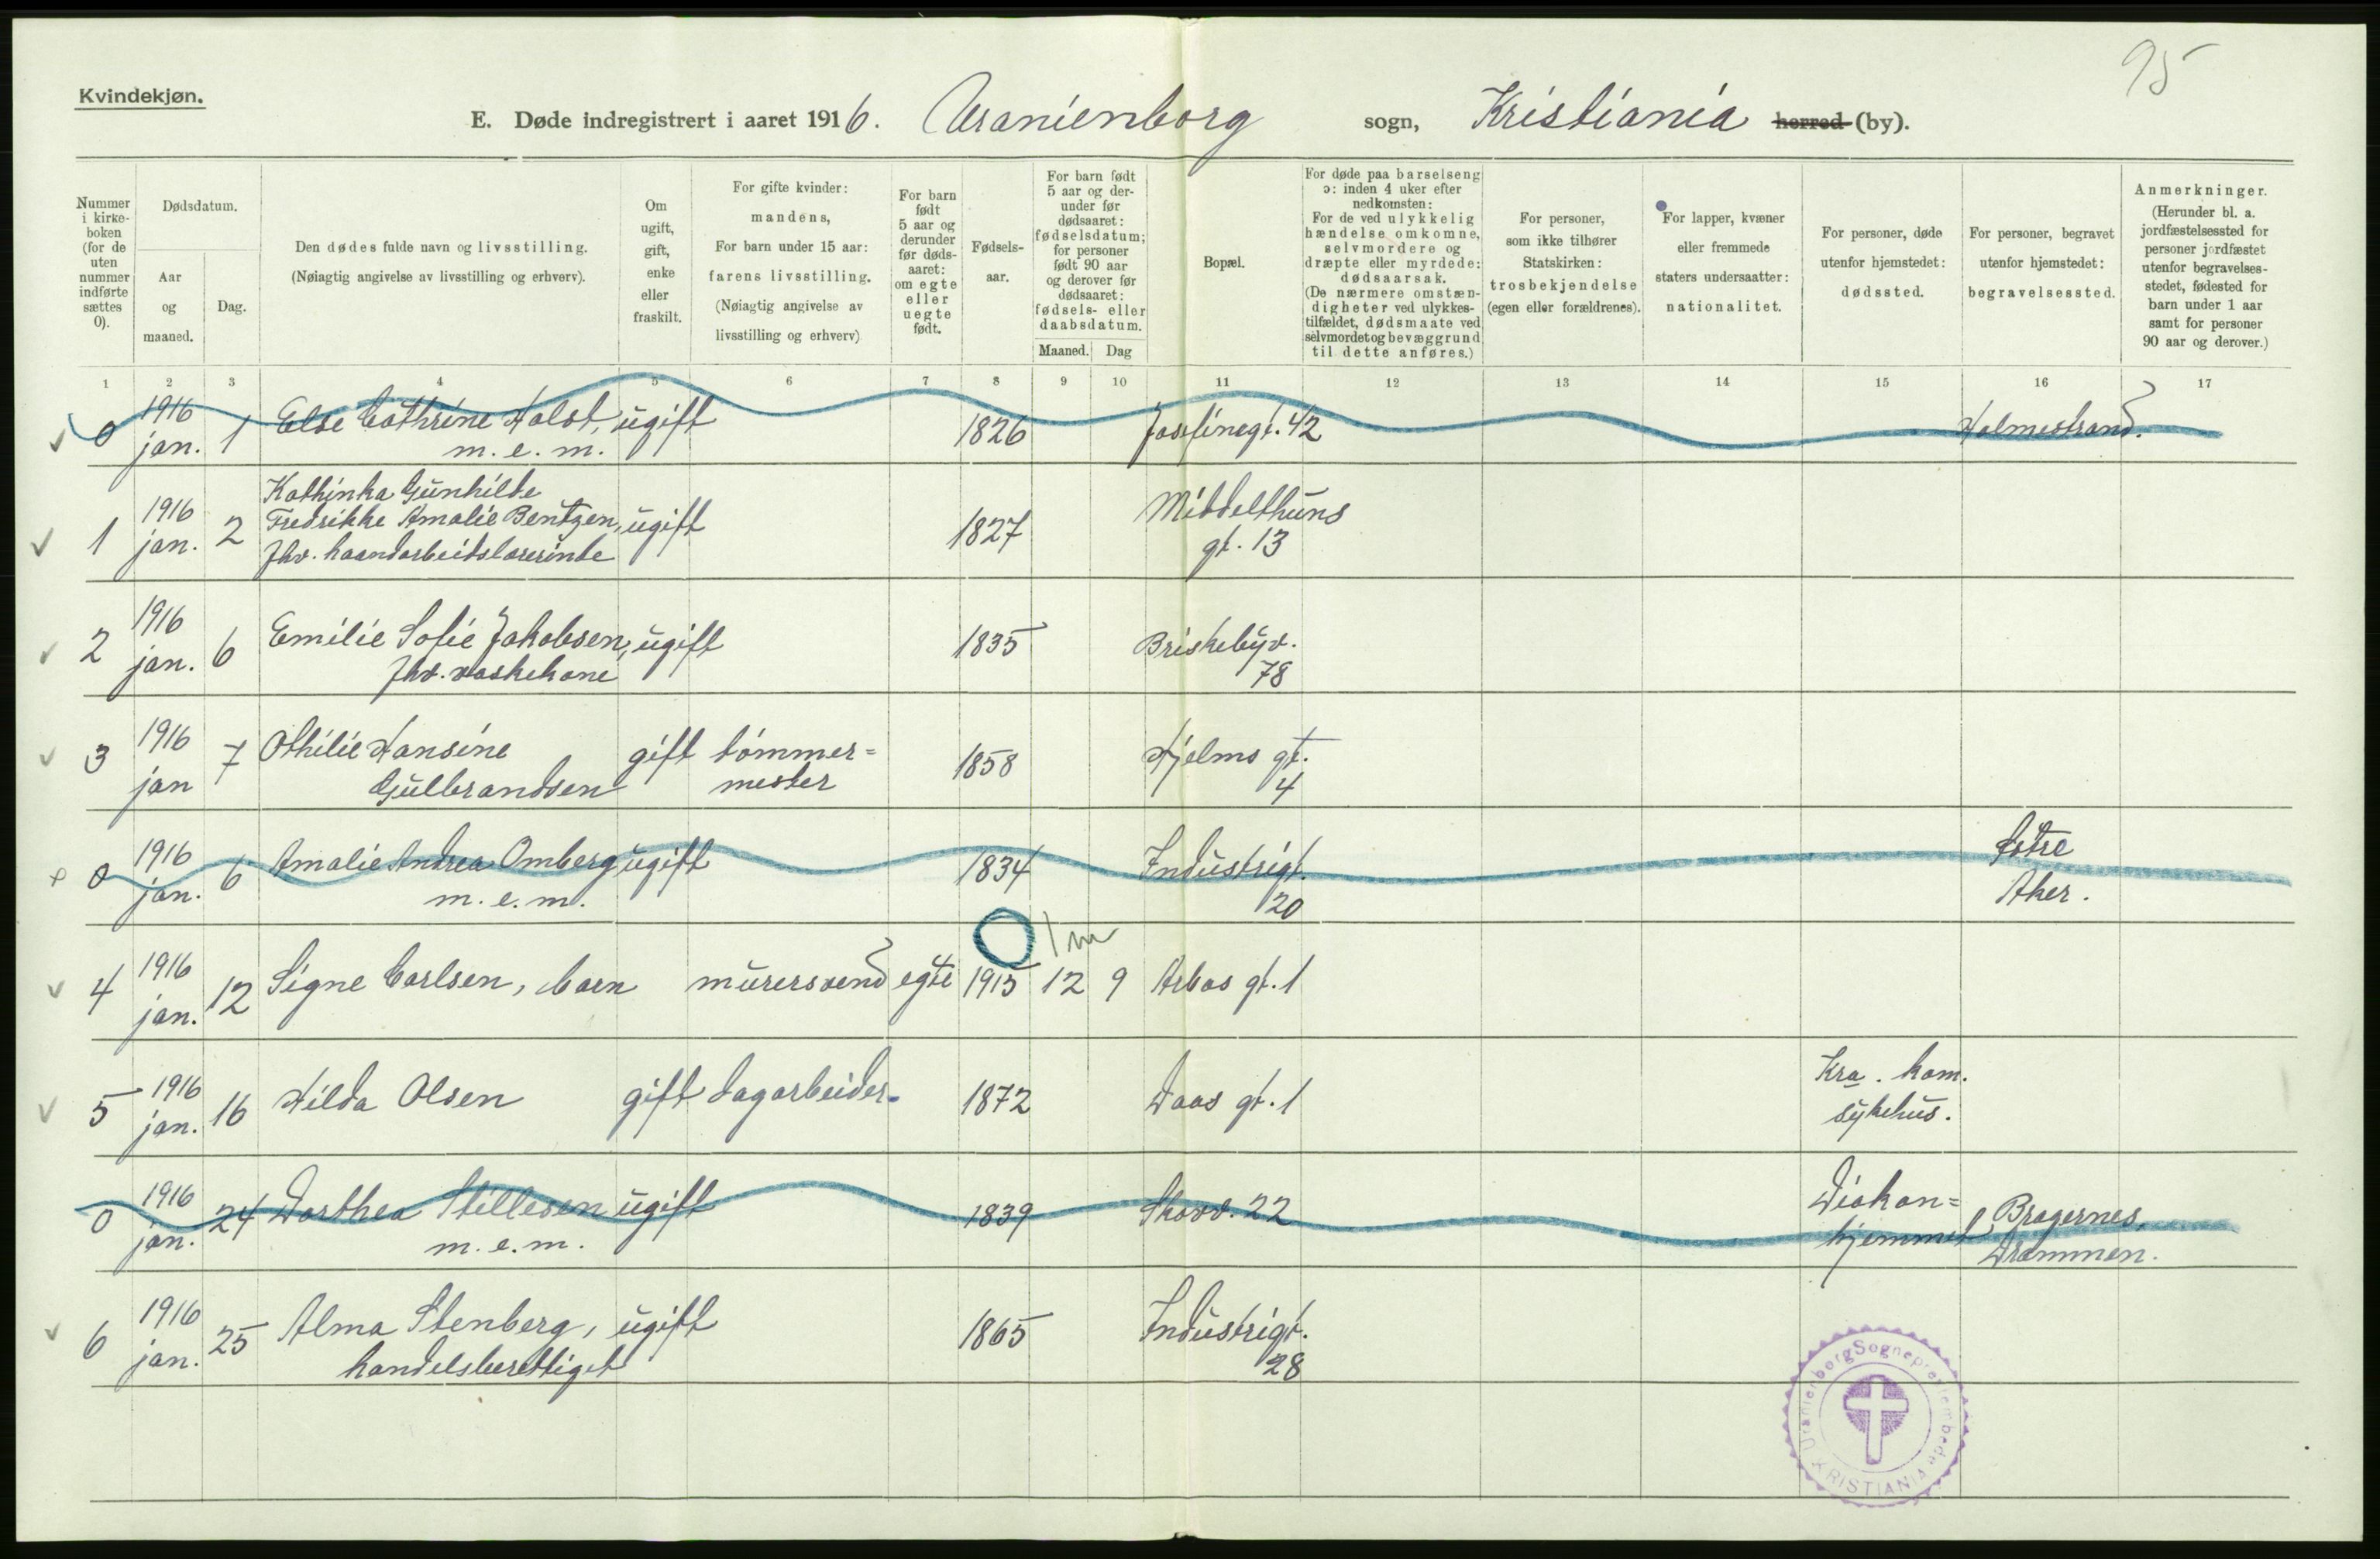 95
Kvindekjøn.
E. Døde indregistrert i aaret 1916. Uranienborg sogn, Kristiania herred (by).
Nummer i kirke-boken (for de uten nummer indførte sættes 0).
Dødsdatum.
Aar og maaned.
Dag.
Den dødes fulde navn og livsstilling.
(Nøiagtig angivelse av livsstilling og erhverv).
Om ugift, gift, enke eller fraskilt.
For gifte kvinder: mandens,
For barn under 15 aar: farens livsstilling.
(Nøiagtig angivelse av livsstilling og erhverv)
For barn født 5 aar og derunder før døds-aaret: om egte eller uegte født.
Fødsels-aar.
For barn født 5 aar og der-under før dødsaaret: fødselsdatum; for personer født 90 aar og derover før dødsaaret: fødsels- eller daabsdatum.
Maaned. Dag
Bopæl.
For døde paa barselseng ɔ: inden 4 uker efter nedkomsten:
For de ved ulykkelig hændelse omkomne, selvmordere og dræpte eller myrdede: dødsaarsak.
(De nærmere omstæn-digheter ved ulykkes-tilfældet, dødsmaate ved selvmordet og bevæggrund til dette anføres.)
For personer, som ikke tilhører Statskirken: trosbekjendelse (egen eller forældrenes).
For lapper, kvæner eller fremmede staters undersaatter: nationalitet.
For personer, døde utenfor hjemstedet: dødssted.
For personer, begravet utenfor hjemstedet: begravelsessted.
Anmerkninger.
(Herunder bl. a. jordfæstelsessted for personer jordfæstet utenfor begravelses-stedet, fødested for barn under 1 aar samt for personer 90 aar og derover.)
1 2 3 4 5 6 7 8 9 10 11 12 13 14 15 16 17
0 1916 jan. 1 Else Cathrine Holst, ugift 1826 Josefinegt. 42 Holmestrand.
m. e. m.
1 1916 jan. 2 Kathinka Gunhilde
Fredrikke Amalie Bentzen, ugift 1827 Middelthuns
fhv. haandarbeidslærerinde gt. 13
2 1916 jan. 6 Emilie Sofie Jakobsen, ugift 1835 Briskebyv.
fhv. vaskekone 78
3 1916 jan 7 Othilie Hansine gift tømmer= 1858 Hjelms gt.
Gulbrandsen mester 4
0 1916 jan. 6 Amalie Andrea Omberg ugift 1834 Industrigt. Østre
m. e. m. 20 Aker.
1 m
4 1916 jan. 12 Signe Carlsen, barn murersvend egte 1915 12 9 Arbos gt. 1
5 1916 jan. 16 Hilda Olsen gift dagarbeider 1872 Daas gt. 1 Kra. kom.
sykehus.
0 1916 jan. 24 Dorthea Stillesen ugift 1839 Skovv. 22 Diakon= Bragernes,
m. e. m. hjemmet Drammen.
6 1916 jan. 25 Alma Stenberg, ugift 1865 Industrigt.
handelsberettiget 28
Uranienborg Sogneprestembede
KRISTIANIA